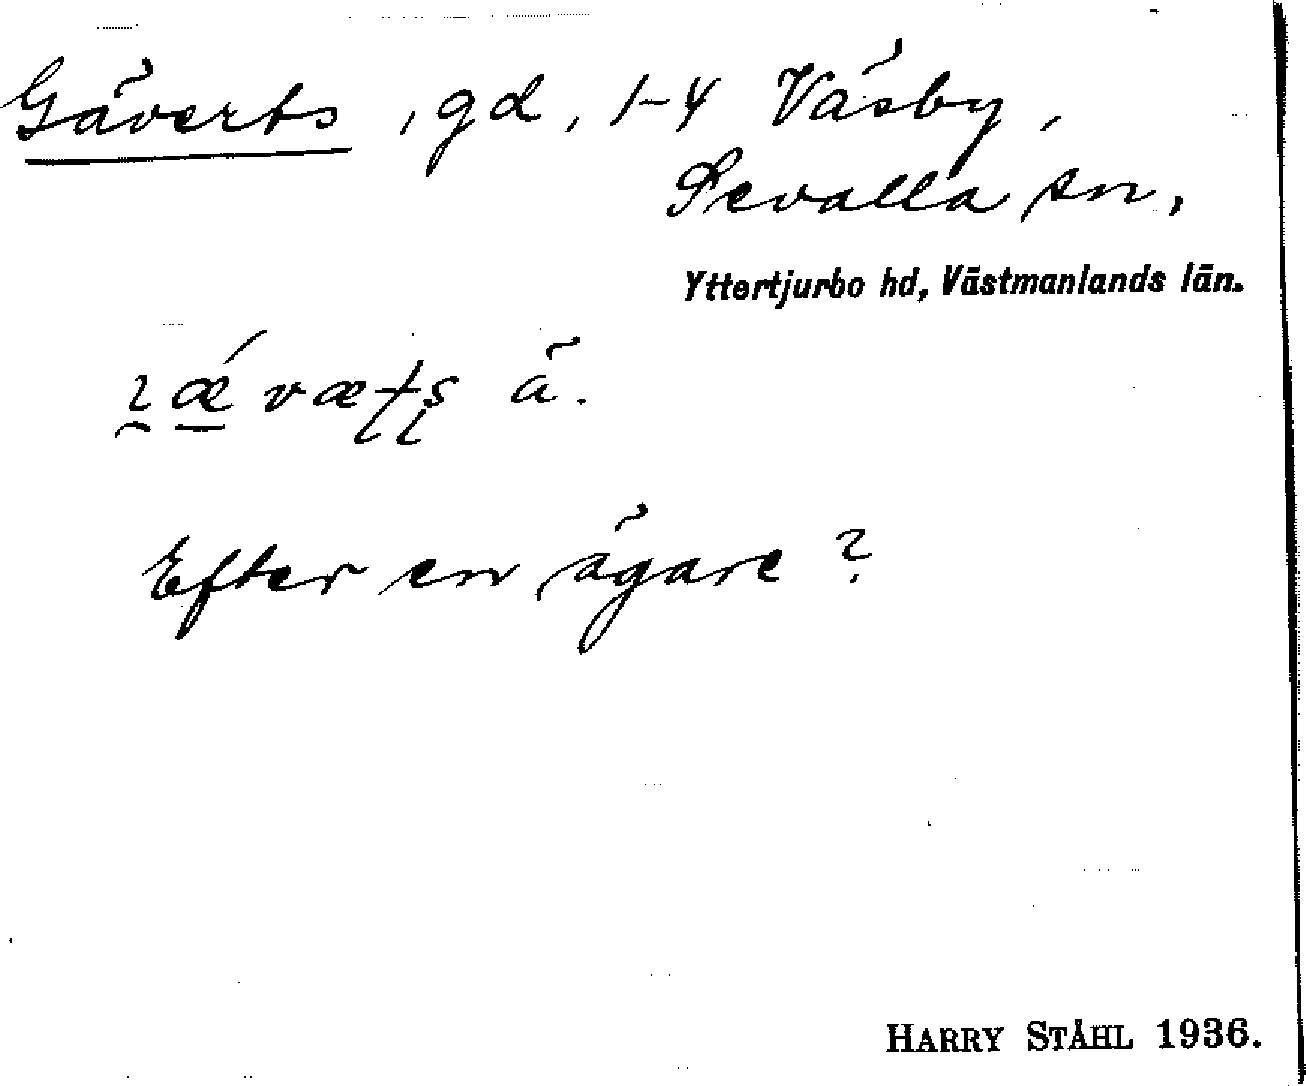 Gäverts, gd, 1-4 Väsby,
Sevalla sn,
Yttertjurbo hd, Västmanlands län.
ä.
Efter en ägare?
HARRY STÅHL 1936.